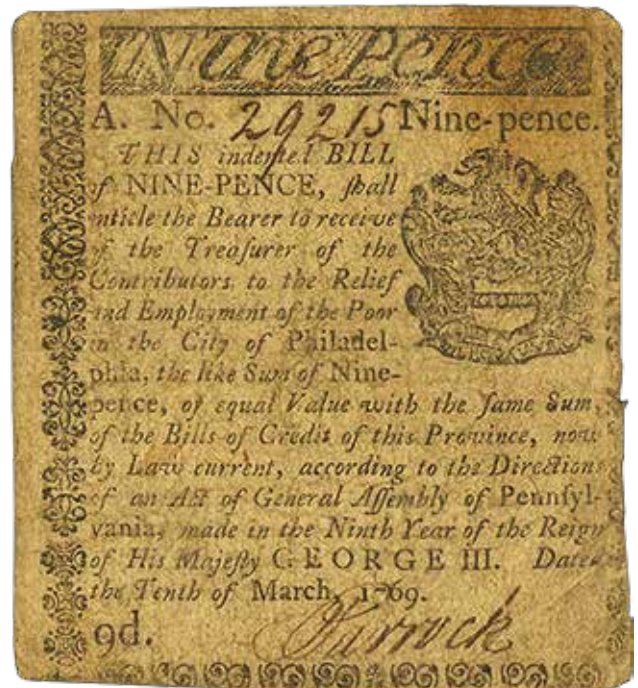 Nine Pence
A. No. 29215 Nine-pence.
THIS indented BILL
of NINE-PENCE, ſhall
entitle the Bearer to receive
of the Treaſurer of the
Contributors to the Relief
and Employment of the Poor
in the City of Philadel-
phia, the like Sum of Nine-
pence, of equal Value with the ſame Sum,
of the Bills of Credit of this Province, now
by Law current, according to the Directions
of an Act of General Aſſembly of Pennſyl-
vania, made in the Ninth Year of the Reign
of His Majeſty GEORGE III. Dated
the Tenth of March, 1769.
9d.